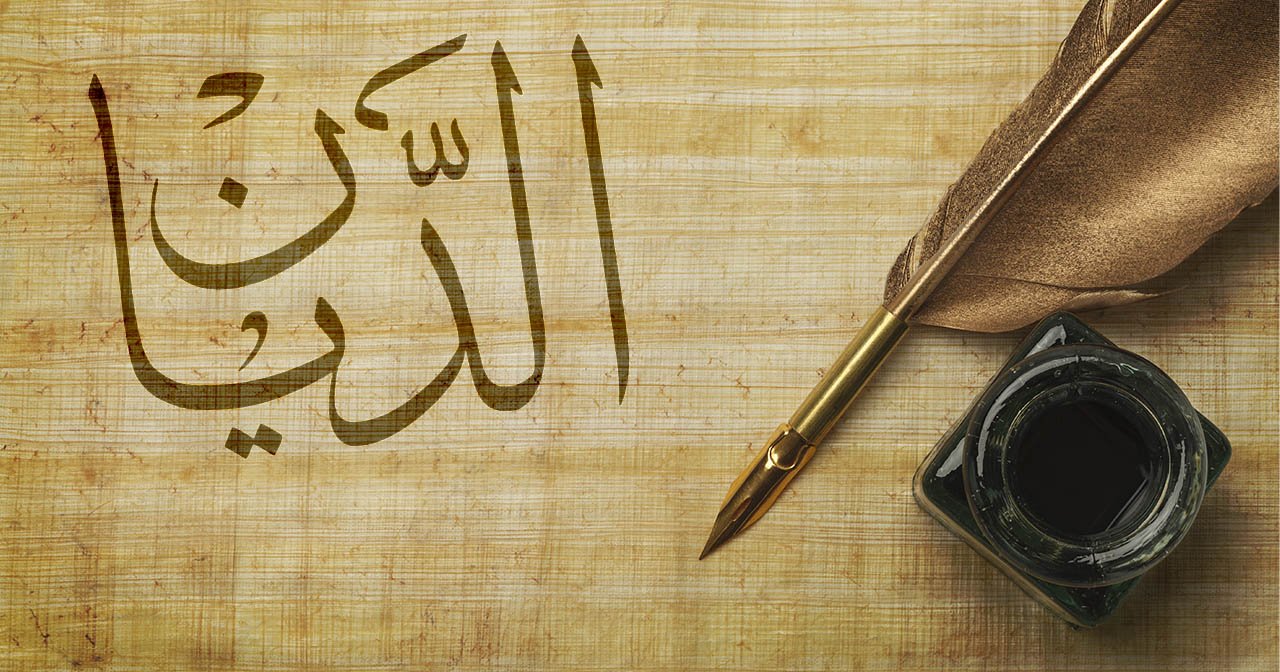 الديّان